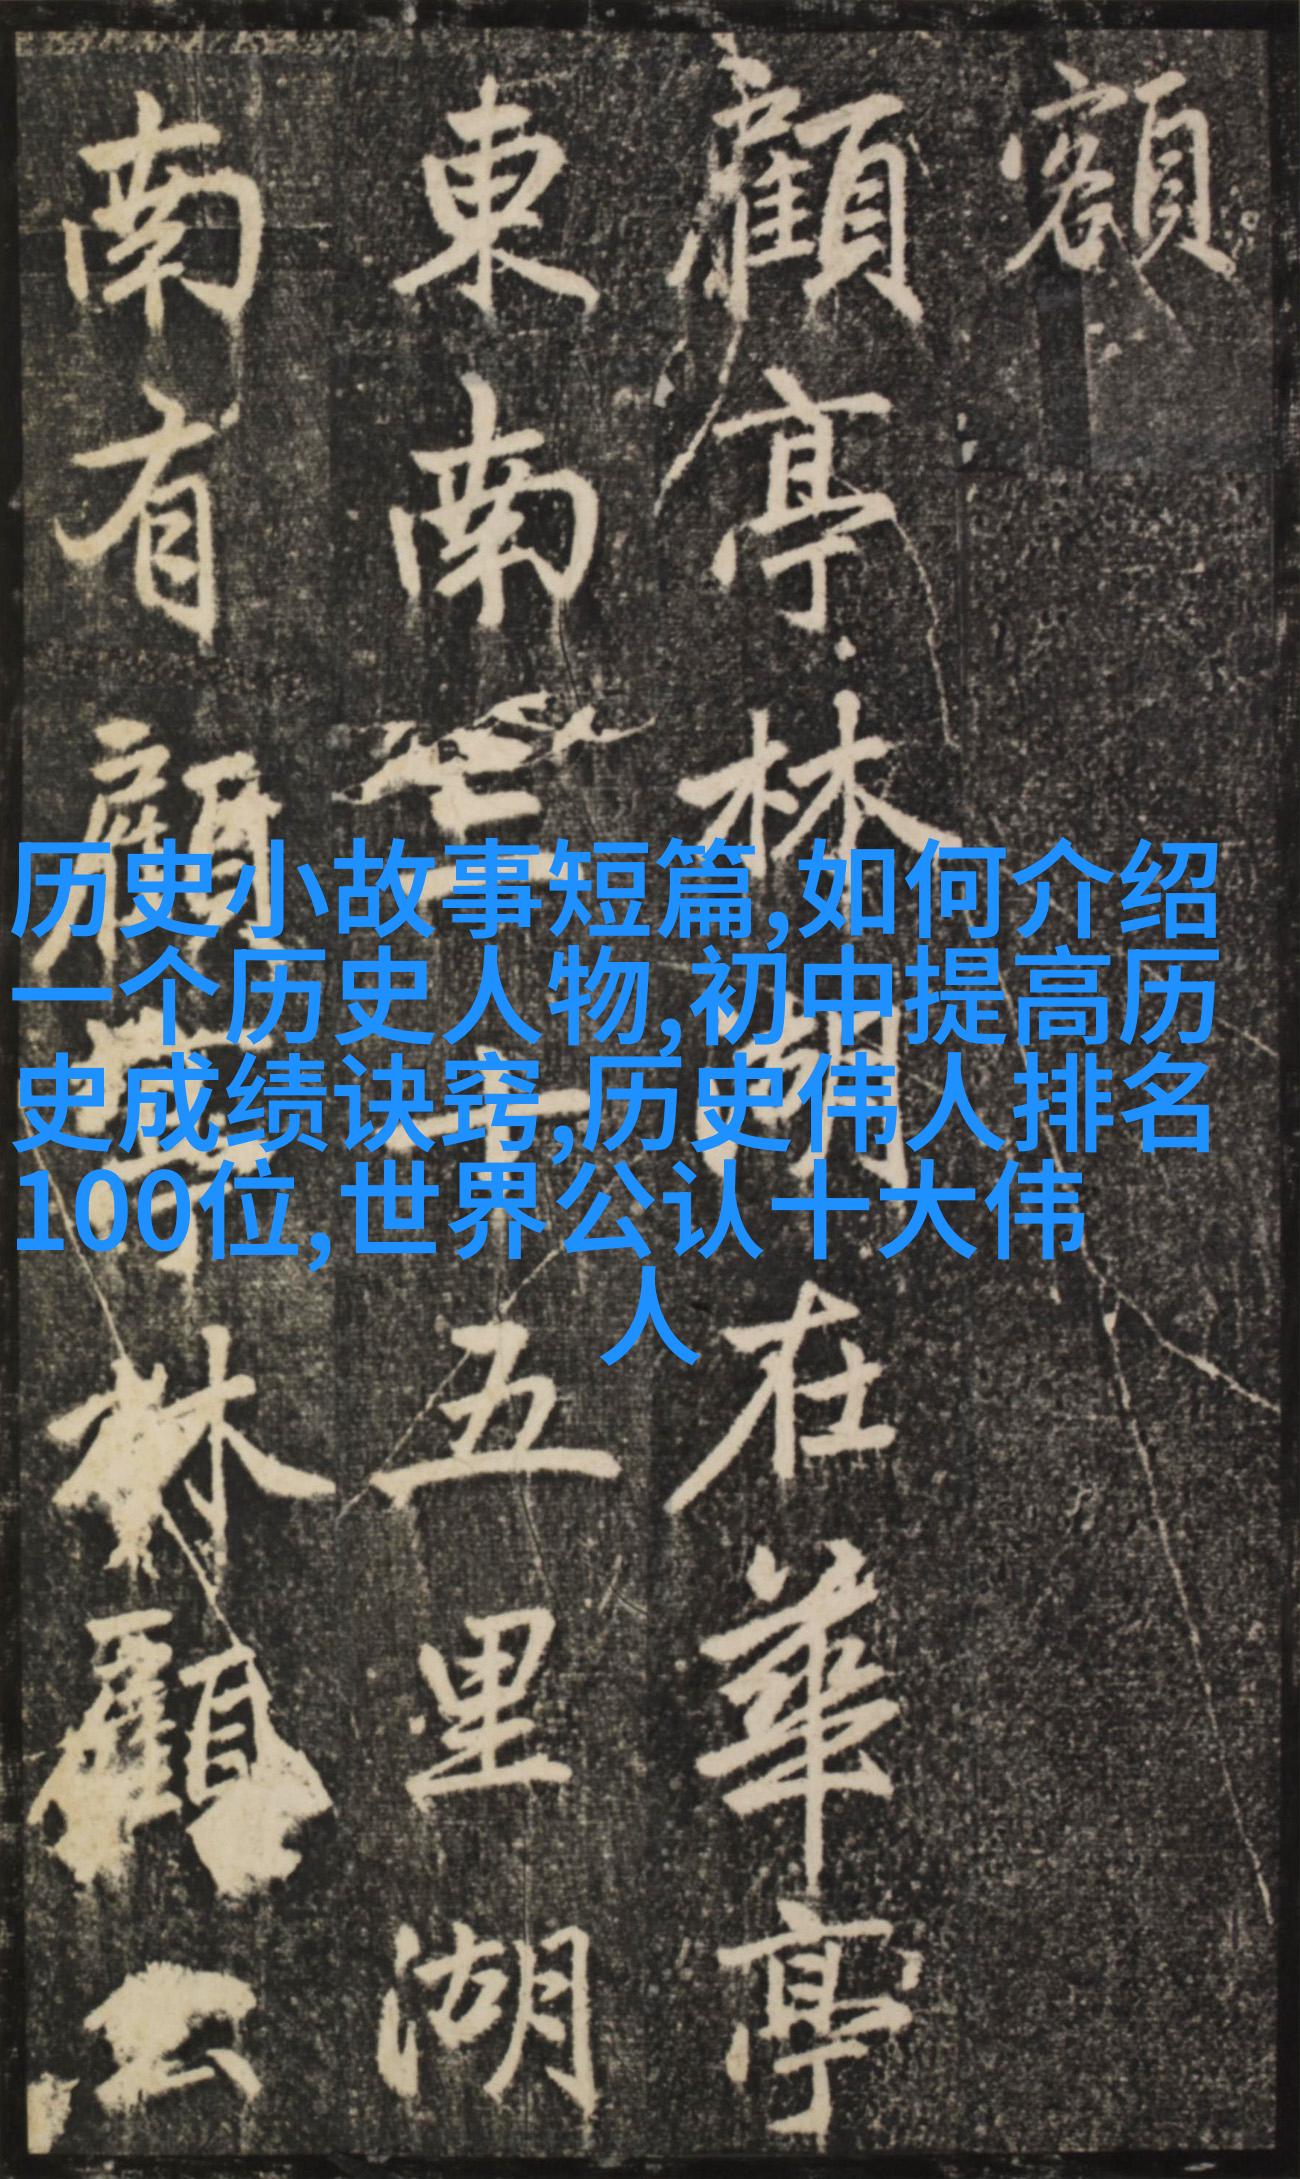 額
顧亭林湖在華亭
東南三十五里湖
南有顧亭林顧公
历史小故事短篇,如何介绍
一个历史人物,初中提高历
史成绩诀窍,历史伟人排名
100位,世界公认十大伟
人